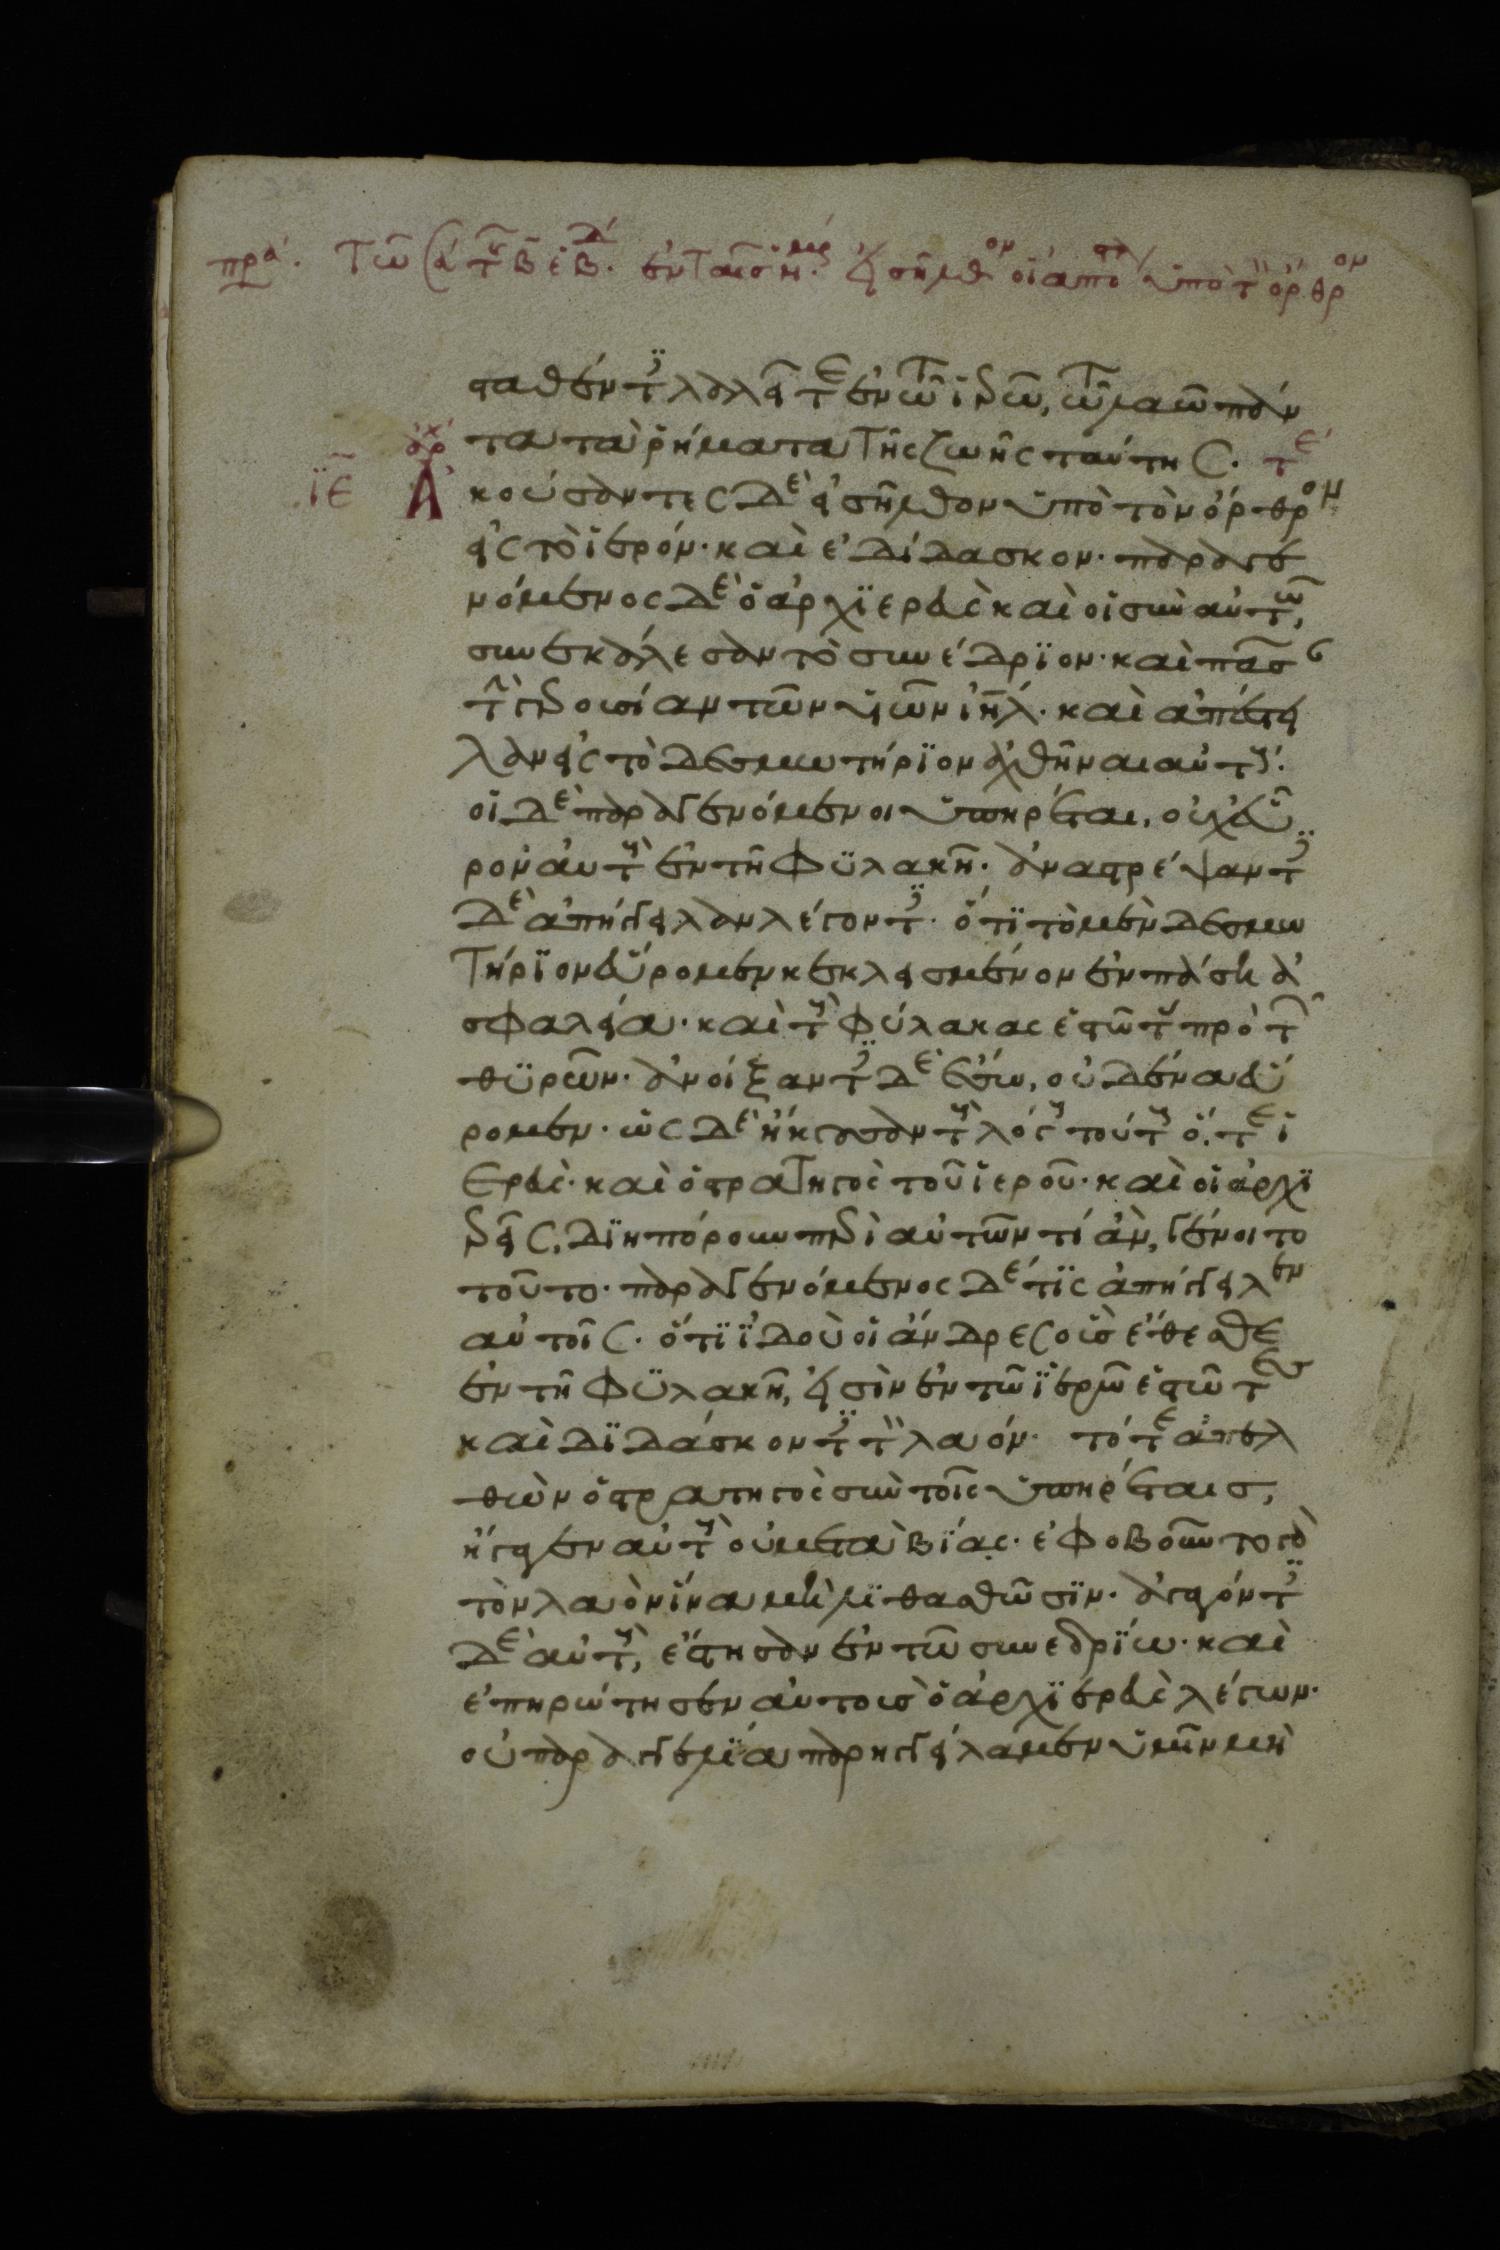 σταθέντες λαλεῖτε ἐν τῶ ἱερῶ, τῶ λαῶ πάν
τα τὰ ῥήματα τῆς ζωῆς ταύτης. τέ
ϊε ἀρχ Ἀκούσαντες δὲ εἰσῆλθον ὑπὸ τὸν ὄρθρον
εἰς τὸ ἱερόν· καὶ ἐδίδασκον· παραγε
νόμενος δὲ ὁ ἀρχϊερεὺς καὶ οἱ σὺν αὐτῶ,
συνεκάλεσαν τὸ συνέδρϊον· καὶ πᾶσαν
τὴν γερουσίαν τῶν υἱῶν ἰηλ· καὶ ἀπέστει
λαν εἰς τὸ δεσμωτήρϊον ἀχθῆναι αὐτούς·
οἱ δὲ παραγενόμενοι ὑπηρέται, οὐχ εὗ
ρον αὐτοὺς ἐν τῆ φϋλακῆ· ἀναστρέψαντες
δὲ ἀπήγγειλαν λέγοντες· ὅτϊ τὸ μὲν δεσμω
τήρϊον εὕρομεν κεκλεισμένον ἐν πάση ἀ
σφαλεία· καὶ τοὺς φύλακας ἑστῶτας πρὸ τῶν
θϋρῶν· ἀνοίξαντες δὲ ἔσω, οὐδένα εὕ
ρομεν· ὡς δὲ ἤκουσαν τοὺς λόγους τούτους ὅ,τε ἱ
ερεὺς· καὶ ὁ στρατηγὸς τοῦ ἱεροῦ· καὶ οἱ ἀρχϊ
ερεῖς, δϊηπόρουν περὶ αὐτῶν τί ἂν, γένοιτο
τοῦτο· παραγενόμενος δέ τϊς ἀπήγγειλεν
αὐτοῖς· ὅτϊ ϊδοὺ οἱ ἄνδρες οὓς ἔθεσθε
ἐν τῆ φϋλακῆ, εἰσὶν ἐν τῶ ϊερῶ ἑστῶτες
καὶ δϊδάσκοντες τὸν λαόν· τότε ἀπελ
θὼν ὁ στρατηγὸς σὺν τοῖς ὑπηρέταις,
ἤγαγεν αὐτοὺς οὐ μετὰ βϊας· ἐφοβοῦντο γὰρ
τὸν λαὸν ἵνα μὴ λϊθασθῶσϊν· ἀγαγόντες
δὲ αὐτοὺς, ἔστησαν ἐν τῶ συνεδρϊω· καὶ
ἐπηρώτησεν αὐτοὺς ὁ ἀρχϊερεὺς λέγων·
οὐ παραγγελϊα παρηγγείλαμεν ὑμῖν μὴ